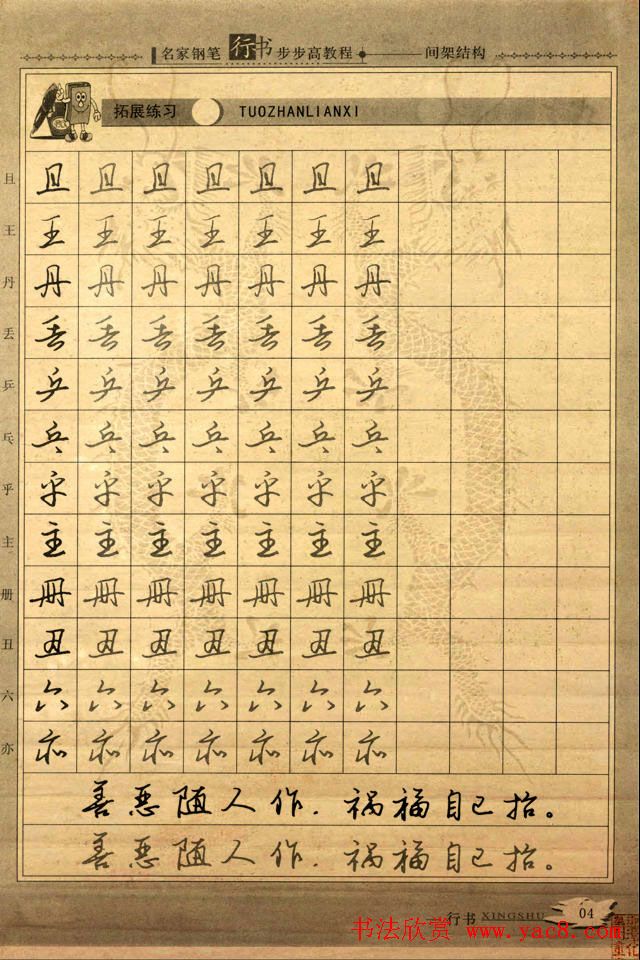 名家钢笔行书步步高教程 间架结构
拓展练习 TUOZHANLIANXI
且 且 且 且 且 且 且 且
王 王 王 王 王 王 王 王
丹 丹 丹 丹 丹 丹 丹 丹
丢 丢 丢 丢 丢 丢 丢 丢
乒 乒 乒 乒 乒 乒 乒 乒
乓 乓 乓 乓 乓 乓 乓 乓
乎 乎 乎 乎 乎 乎 乎 乎
主 主 主 主 主 主 主 主
册 册 册 册 册 册 册 册
丑 丑 丑 丑 丑 丑 丑 丑
六 六 六 六 六 六 六 六
亦 亦 亦 亦 亦 亦 亦 亦
善恶随人作,祸福自己招。
善恶随人作,祸福自己招。
行书 XINGSHU 04
书法欣赏 www.yac8.com